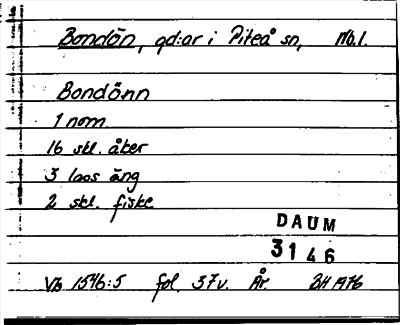 Bondön, gd:ar i Piteå sn, Nb.l.
Bondönn
1 nom.
16 skl. åker
3 lass äng
2 skl. fiske
DAUM
3146
Vb 1546:5 fol. 37v. År BH 1976